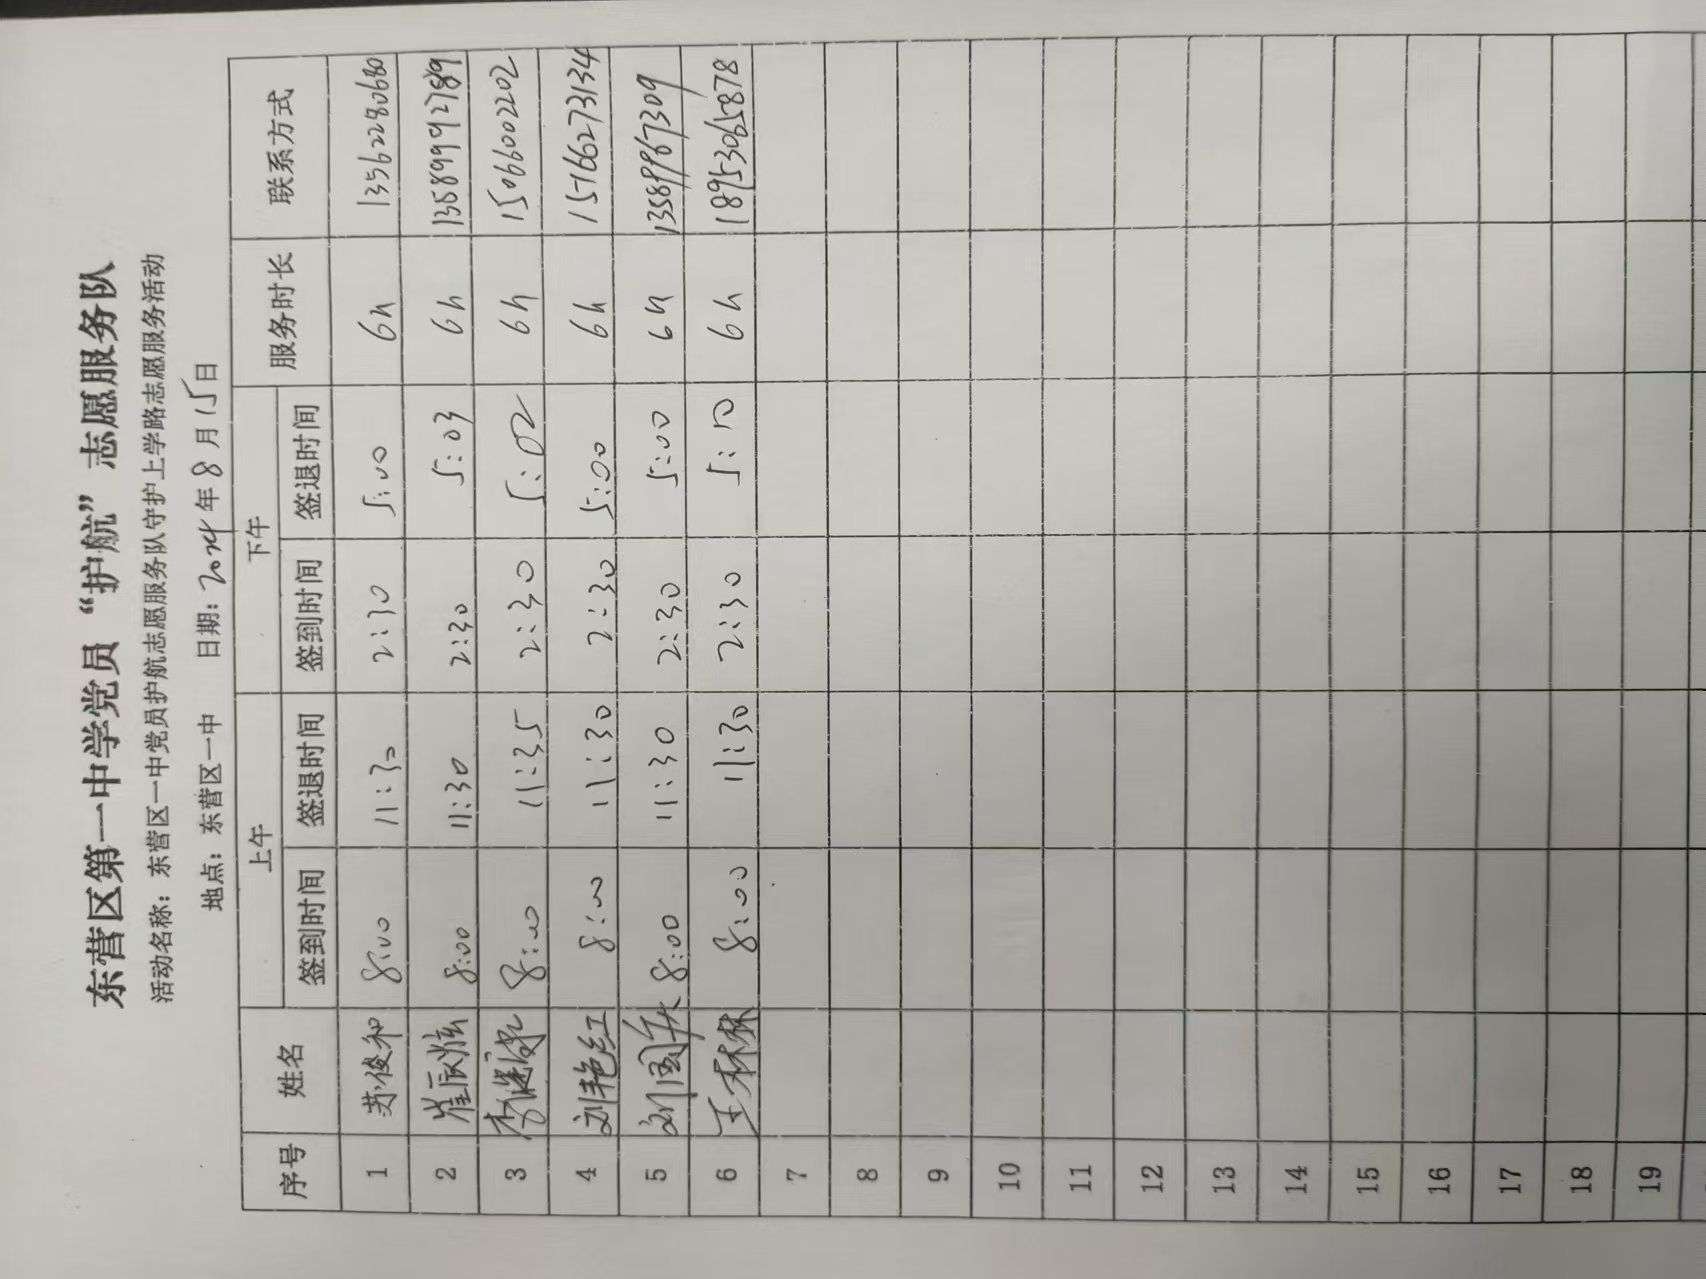 东营区第一中学党员“护航”志愿服务队
活动名称：东营区一中党员护航志愿服务队守护上学路志愿服务活动
地点：东营区一中 日期：2024年8月15日
序号 姓名 上午 下午 服务时长 联系方式
签到时间 签退时间 签到时间 签退时间
1 苏俊和 8:00 11:30 2:30 5:00 6h 13562280680
2 崔辰炫 8:00 11:30 2:30 5:03 6h 13589992789
3 8:00 11:35 2:30 5:02 6h 15066002202
4 刘艳红 8:00 11:30 2:30 5:00 6h 15166273134
5 8:00 11:30 2:30 5:00 6h 13589967309
6 王林林 8:00 11:30 2:30 5:10 6h 18953065878
7
8
9
10
11
12
13
14
15
16
17
18
19